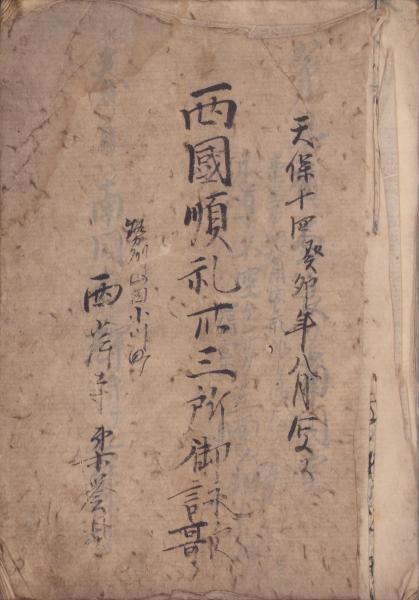 天保十四癸卯年八月写之
西國順礼卅三所御詠歌
勢州山田小川町
西岸寺